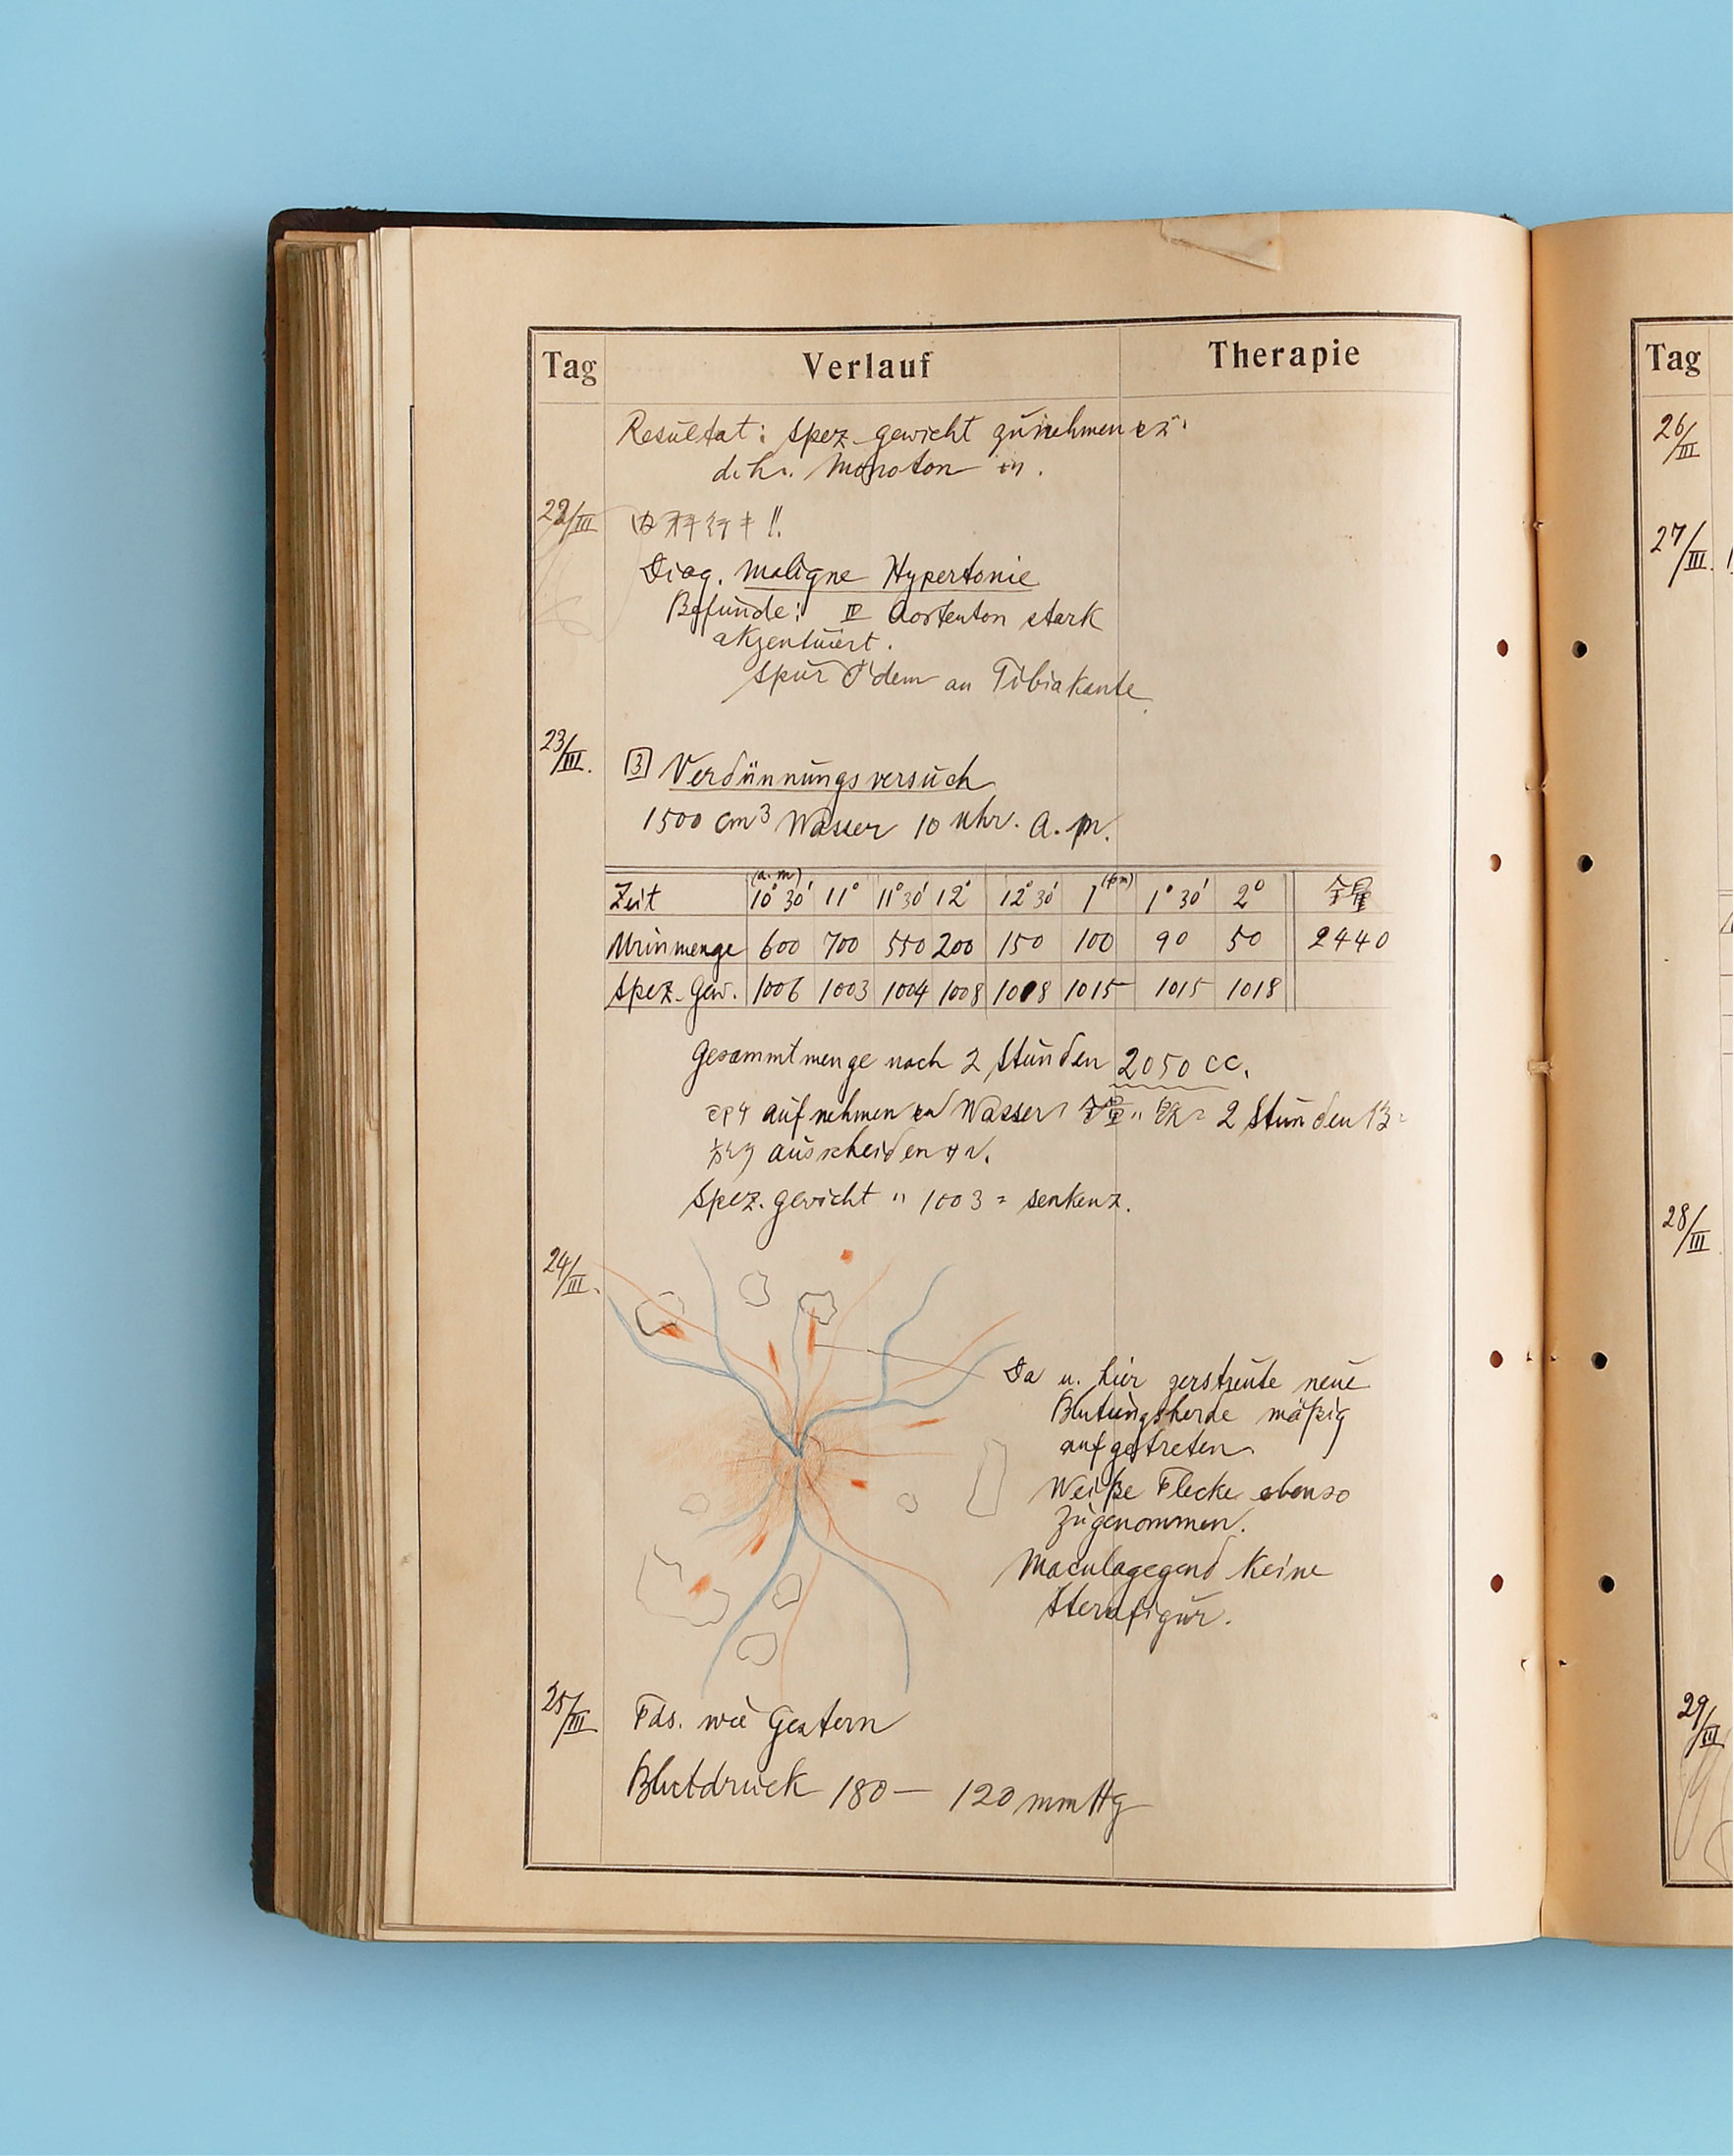 Tag Verlauf Therapie
Resultat: Spez. gewicht zunehmen セズ.
d.h. Monoton ナリ.
22/III 内科行キ!!
Diag. maligne Hypertonie
Befunde: II Aortenton stark
akzentuiert.
Spur Ödem an Tibiakante.
23/III. 3 Verdünnungsversuch
1500 cm3 Wasser 10 Uhr. a. m.
Zeit (a.m) 10° 30' 11° 11° 30' 12° 12° 30' 1° (pm) 1° 30' 2° 全量
Urinmenge 600 700 550 200 150 100 90 50 2440
Spez. Gew. 1006 1003 1004 1008 1008 1015 1015 1018
Gesammtmenge nach 2 Stunden 2050 cc.
aufnehmen Wasser 全量 2 Stunden
ausscheiden
Spez. gewicht ハ 1003 ニ senken ス.
24/III.
Da u. hier zerstreute neue
Blutungsherde mäßig
aufgetreten.
Weiße Flecke ebenso
zugenommen.
Maculagegend keine
Sternfigur.
25/III Fds. wie Gestern
Blutdruck 180 — 120 mmHg
Tag
26/III
27/III.
28/III
29/III